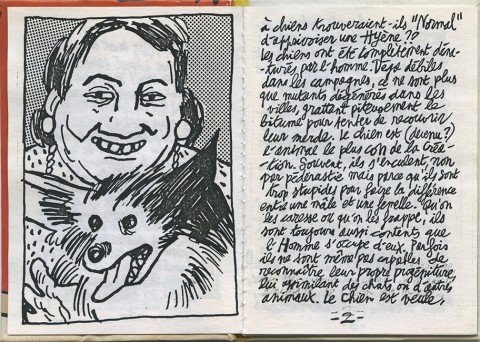 à chiens trouveraient-ils "Normal"
d'apprivoiser une Hyène ??
Les chiens ont été complètement déna-
-turés par l'homme. Déjà débiles,
dans les campagnes, ce ne sont plus
que mutants dégénérés dans les
villes, grattant piteusement le
bitume pour tenter de recouvrir
leur merde. Le chien est (devenu ?)
l'animal le plus con de la Créa-
-tion. Souvent, ils s'enculent, non
par pédérastie mais parce qu'ils sont
trop stupides pour faire la différence
entre une mâle et une femelle. Qu'on
les caresse ou qu'on les frappe, ils
sont toujours aussi contents que
l'Homme s'occupe d'eux. Parfois
ils ne sont même pas capables de
reconnaître leur propre progéniture,
lui assimilant des chats ou d'autres
animaux. Le Chien est veule,
-2-